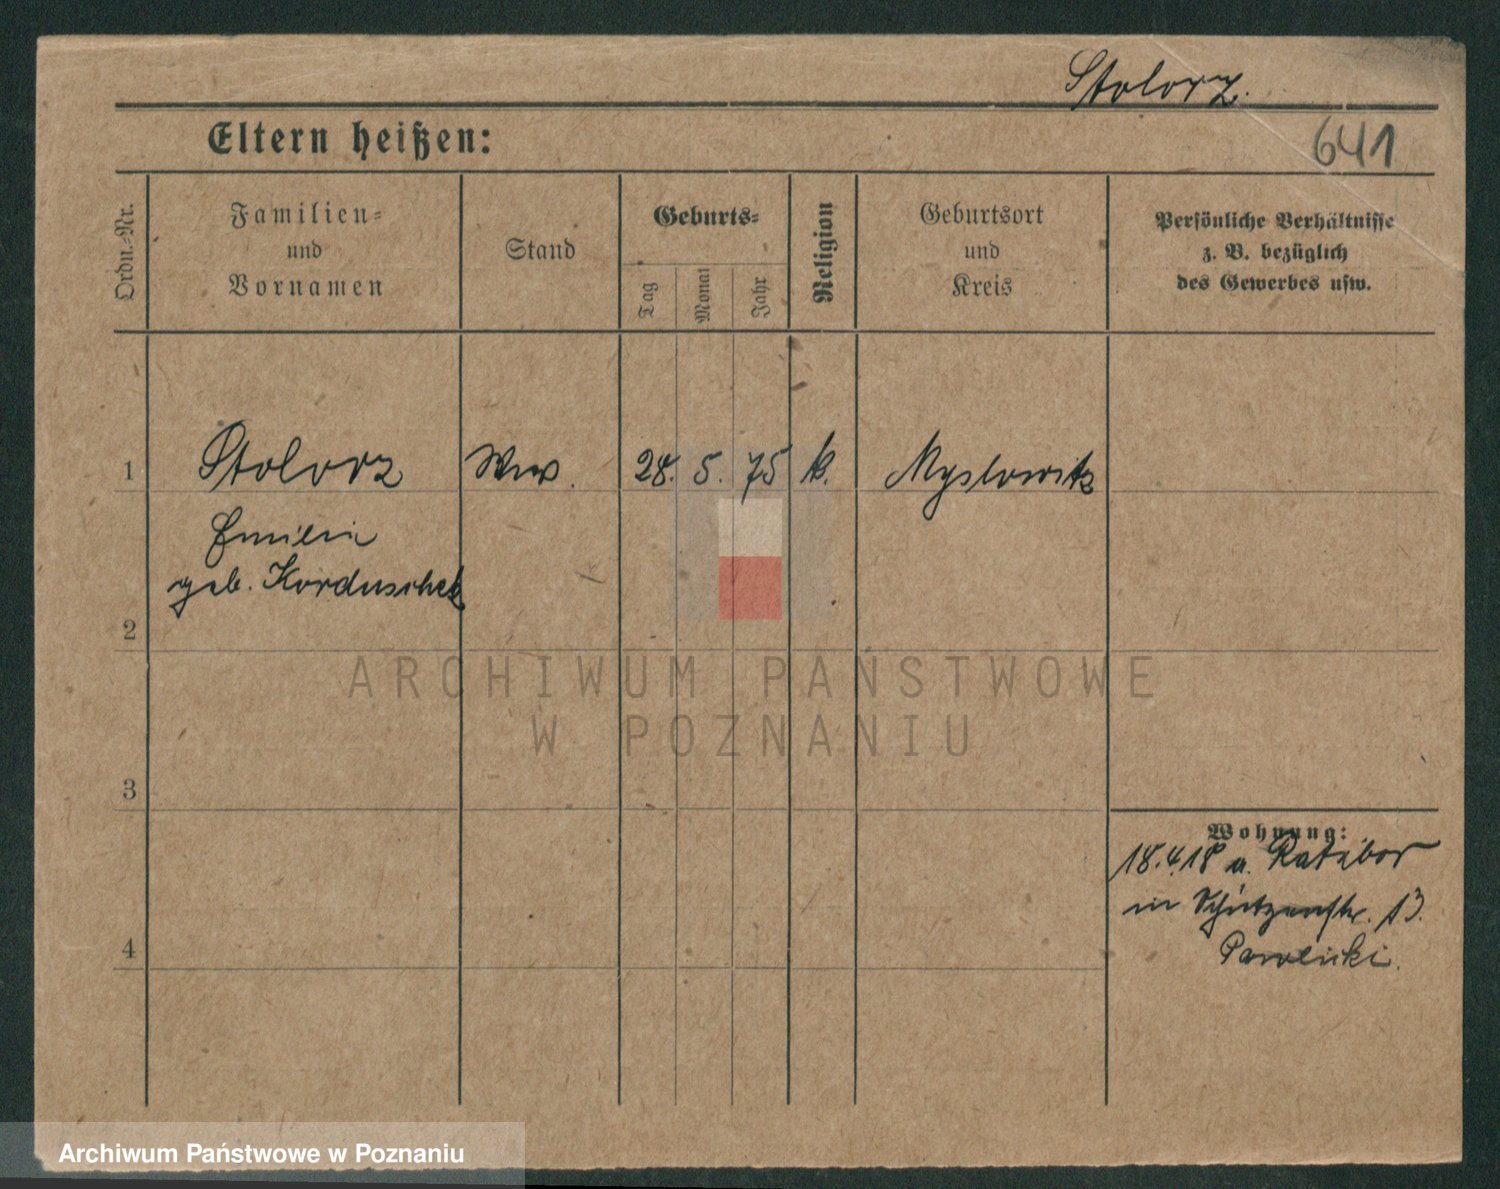 Stolorz.
Eltern heißen:
641
Ordn.-Nr.
Familien-
und
Vornamen
Stand
Geburts-
Tag
Monat
Jahr
Religion
Geburtsort
und
Kreis
Persönliche Verhältnisse
z. B. bezüglich
des Gewerbes usw.
1 Stolorz Wwe. 28. 5. 75 k. Myslowitz
Emilie
geb. Korduschek
2
ARCHIWUM PAŃSTWOWE
W POZNANIU
3
Wohnung:
18.4.18 a. Ratibor
in Schützenstr. 13.
4
Archiwum Państwowe w Poznaniu